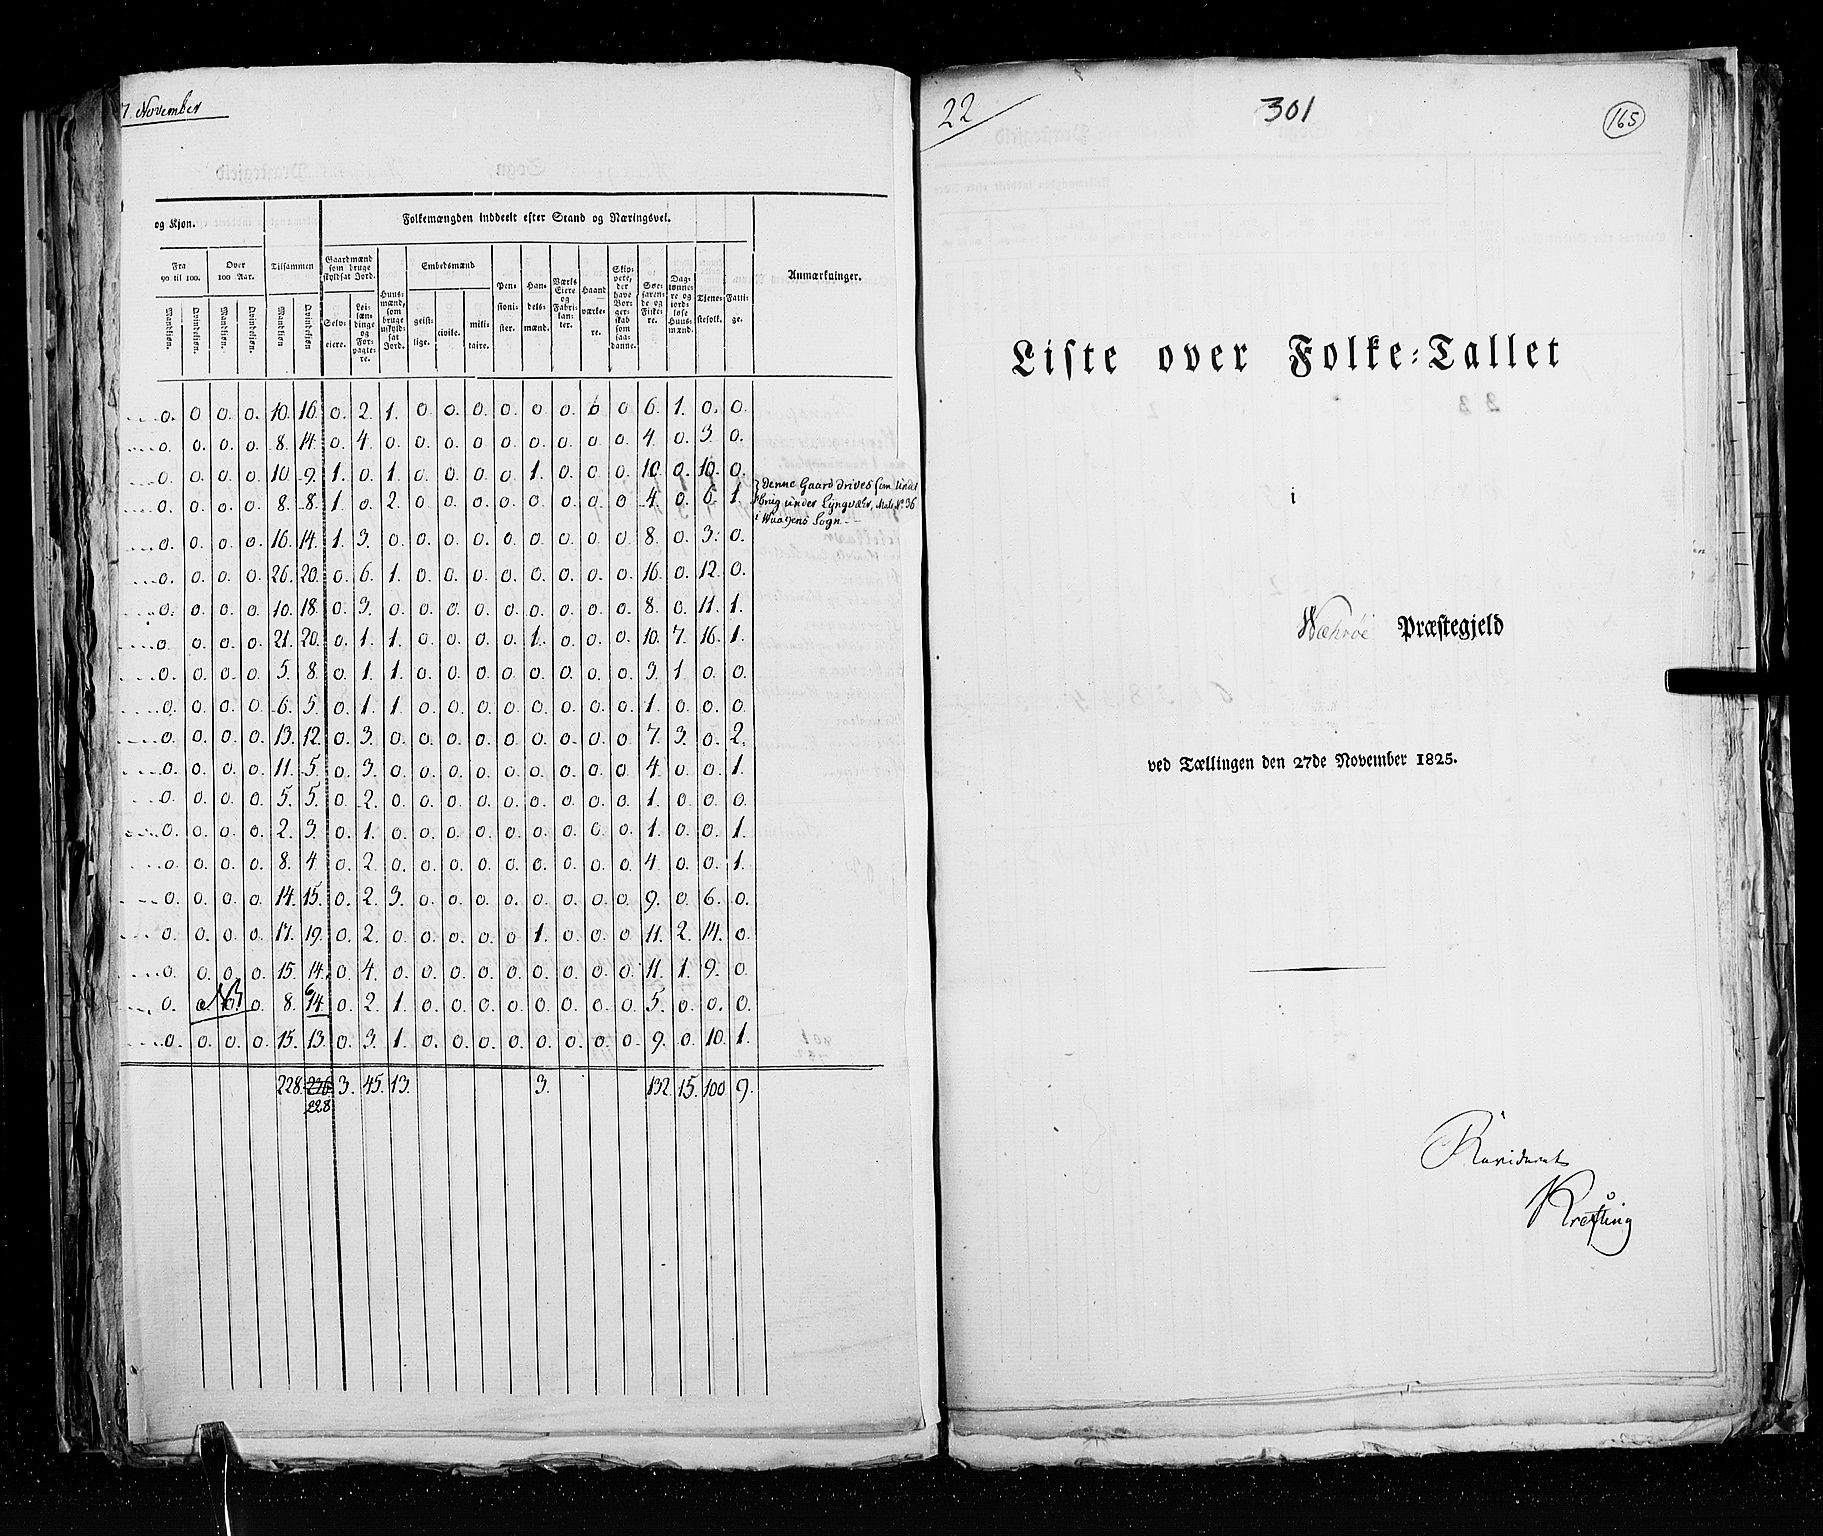 7. November
og Kjøn.
Folkemængden inddeelt efter Stand og Næringsvei.
Fra 90 til 100.
Over 100 Aar.
Tilsammen
Gaardmænd som bruge skyldsat Jord.
Huusmænd, som bruge uskyldsat Jord.
Embedsmænd
Pensionister.
Handelsmænd.
Værks Eiere og Fabrikanter.
Haandværkere.
Skippere, der have Borgerskab som saadanne.
Søefarende og Fiskere.
Daglønnere og jordløse Huusmænd.
Tjenestefolk.
Fattige.
Anmærkninger.
Mandkjøn. Qvindekjøn. Mandkjøn. Qvindekjøn. Mandkjøn Qvindekjøn Selveiere. Leilændinge og Forpagtere. geistlige. civile. militaire.
0. 0 0. 0. 10. 16. 0. 2. 1. 0. 0. 0. 0. 0. 0. 0 0 6. 1. 0. 0.
0. 0. 0. 0. 8. 14. 0. 4. 0. 0. 0. 0. 0. 0. 0. 0. 0. 4. 0. 3. 0.
0. 0. 0. 0. 10. 9. 1. 0. 1. 0. 0. 0. 0 1. 0. 0. 0. 10. 0. 10. 0.
0. 0. 0. 0. 8. 8. 1. 0. 2. 0. 0. 0. 0. 0. 0. 0. 0. 4. 0. 6. 1.
Denne Gaard drives som Under
brug under Lyngvær, Mat. No 36
i Waagens Sogn
0. 0. 0. 0. 16. 14. 1. 3. 0. 0. 0. 0. 0. 0. 0. 0. 0. 8. 0. 3. 0.
0. 0. 0. 0. 26. 20. 0. 6. 1. 0. 0. 0. 0. 0. 0. 0. 0. 16. 0. 12. 0.
0. 0. 0. 0. 10. 18. 0. 3. 0. 0. 0. 0. 0. 0. 0. 0. 0. 8. 0. 11. 1.
0. 0. 0. 0. 21. 20. 0. 1. 1. 0. 0. 0. 0. 1. 0. 0. 0. 10. 7. 16. 1.
0. 0. 0. 0. 5. 8. 0. 1. 1. 0. 0. 0. 0. 0. 0. 0. 0. 3. 1. 0. 0.
0. 0. 0. 0. 6. 5. 0. 1. 1. 0. 0. 0. 0. 0. 0. 0. 0. 1. 0. 0. 0.
0. 0. 0. 0. 13. 12. 0. 3. 0. 0. 0. 0. 0. 0. 0. 0. 0. 7. 3. 0. 2.
0. 0. 0. 0. 11. 5. 0. 3. 0. 0. 0. 0. 0. 0. 0. 0. 0. 4. 0. 0. 1.
0. 0. 0. 0. 5. 5. 0. 2. 0. 0. 0. 0. 0. 0. 0. 0. 0. 1. 0. 0. 0.
0. 0. 0. 0. 2. 3. 0. 1. 0. 0. 0. 0. 0. 0. 0. 0. 0. 1. 0. 0. 1.
0. 0. 0. 0. 8. 4. 0. 2. 0. 0. 0. 0. 0. 0. 0. 0. 0. 4. 0. 0. 1.
0. 0. 0. 0. 14. 15. 0. 2. 3. 0. 0. 0. 0. 0. 0. 0. 0. 9. 0. 6. 0.
0. 0. 0. 0. 17. 19. 0. 2. 0. 0. 0. 0. 0 1. 0. 0. 0 11. 2. 14. 0.
0. 0. 0. 0. 15. 14. 0. 4. 0. 0. 0. 0. 0. 0. 0. 0. 0. 11. 1. 9. 0.
6
0. 0. NB 0. 8. 14. 0. 2. 1. 0. 0. 0. 0. 0. 0. 0. 0. 5. 0. 0. 0.
0. 0. 0. 0. 15. 13. 0. 3. 1. 0. 0. 0. 0. 0. 0. 0. 0. 9. 0. 10. 1.
228. 236 3. 45. 13. 3. 132. 15. 100 9.
228
22
301
165
Liste over Folke-Tallet
i
Wæhrøe Præstegjeld
ved Tællingen den 27de November 1825.
Revideret
Krefting